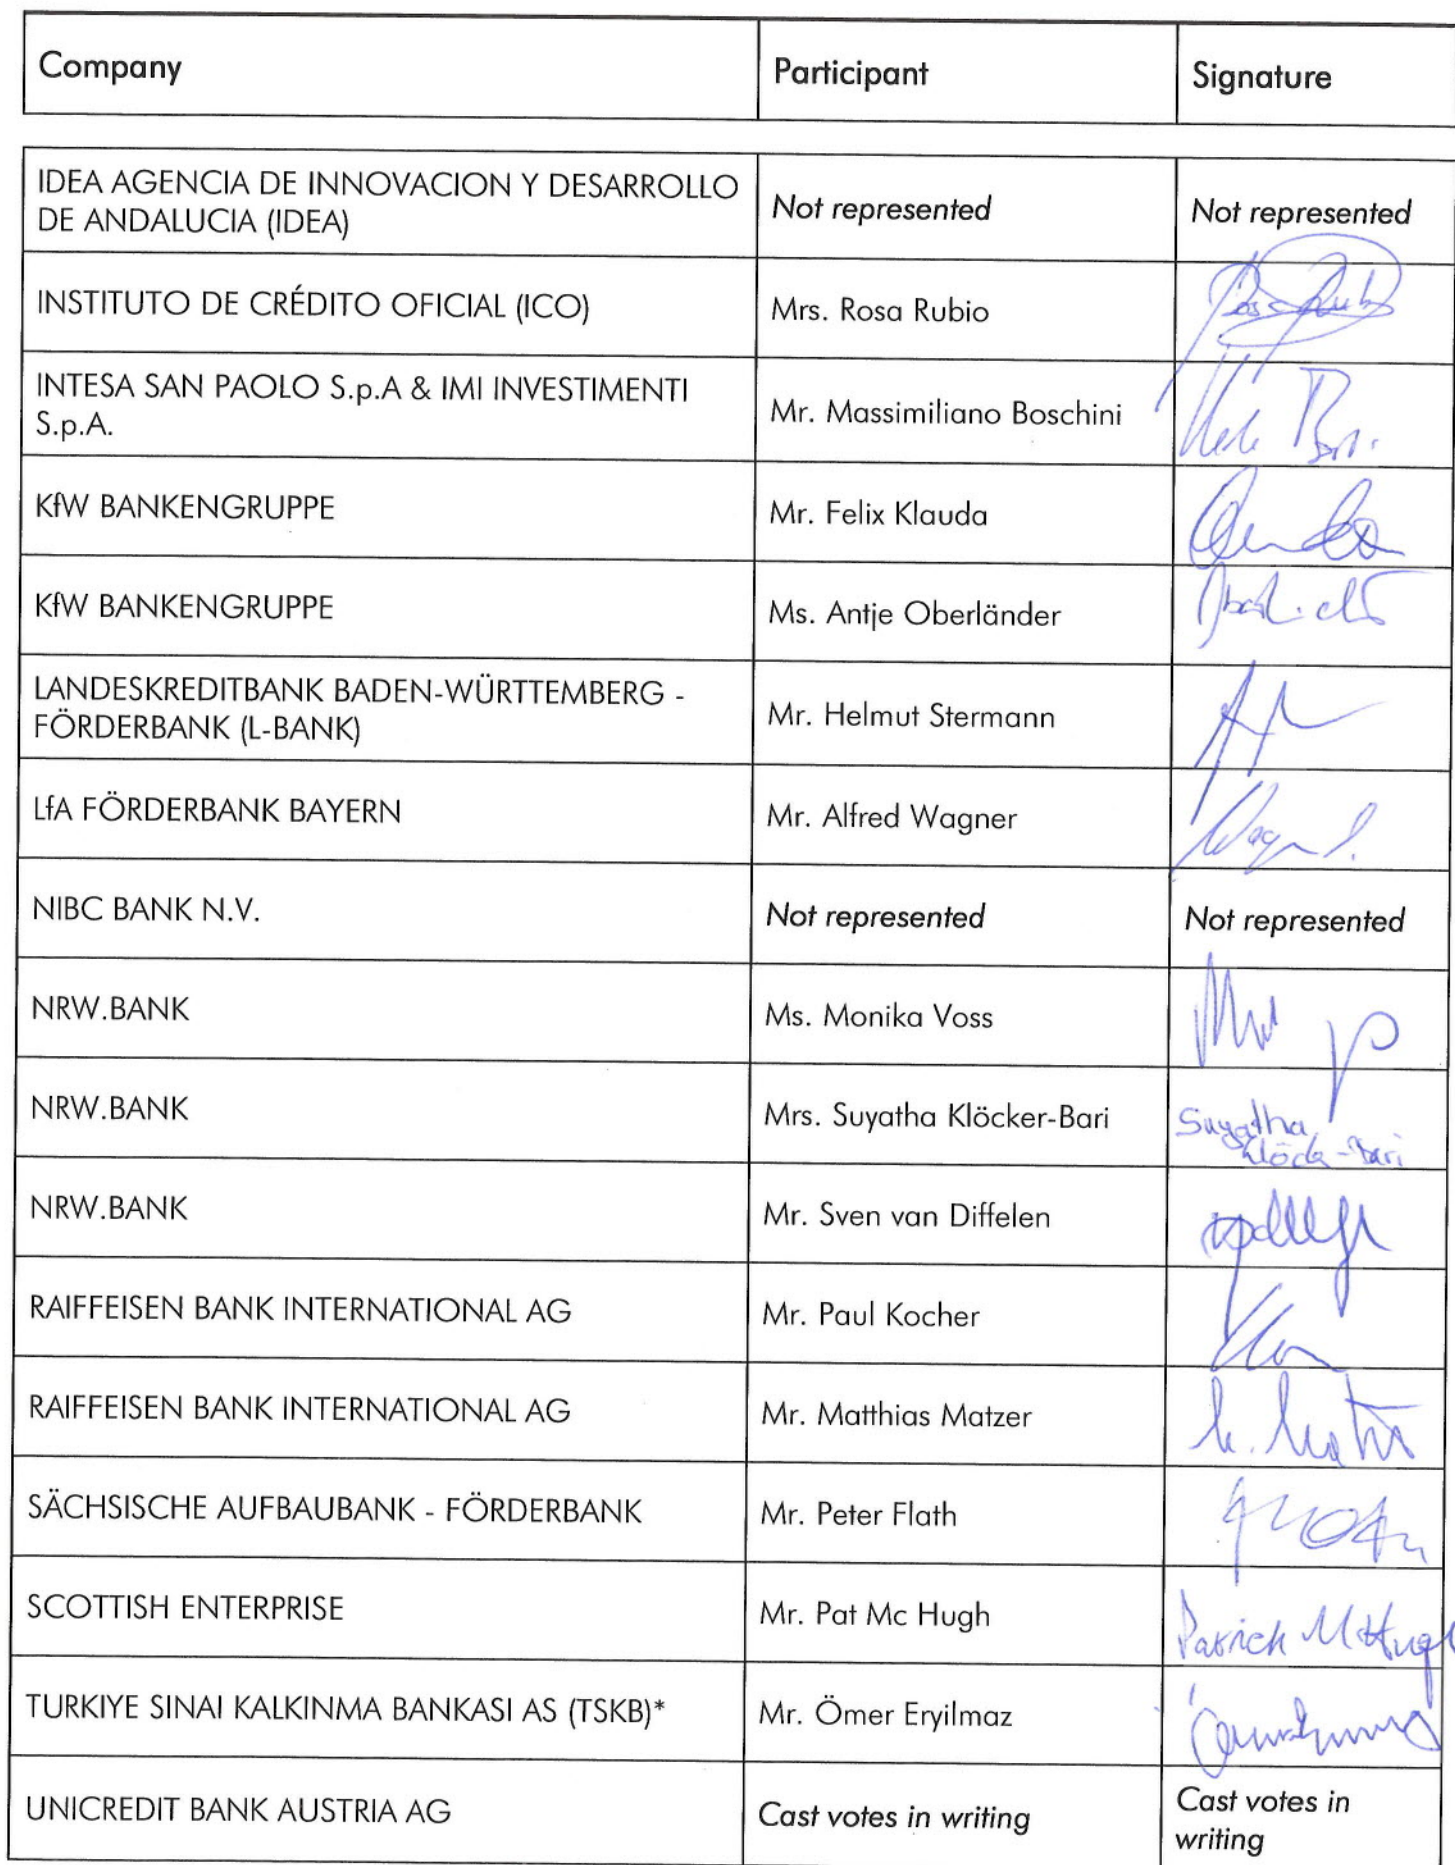 Company Participant Signature
IDEA AGENCIA DE INNOVACION Y DESARROLLO
DE ANDALUCIA (IDEA)
Not represented Not represented
INSTITUTO DE CRÉDITO OFICIAL (ICO) Mrs. Rosa Rubio
INTESA SAN PAOLO S.p.A & IMI INVESTIMENTI
S.p.A.
Mr. Massimiliano Boschini
KfW BANKENGRUPPE Mr. Felix Klauda
KfW BANKENGRUPPE Ms. Antje Oberländer
LANDESKREDITBANK BADEN-WÜRTTEMBERG -
FÖRDERBANK (L-BANK)
Mr. Helmut Stermann
LfA FÖRDERBANK BAYERN Mr. Alfred Wagner
NIBC BANK N.V. Not represented Not represented
NRW.BANK Ms. Monika Voss
NRW.BANK Mrs. Suyatha Klöcker-Bari Suyatha
NRW.BANK Mr. Sven van Diffelen
RAIFFEISEN BANK INTERNATIONAL AG Mr. Paul Kocher
RAIFFEISEN BANK INTERNATIONAL AG Mr. Matthias Matzer
SÄCHSISCHE AUFBAUBANK - FÖRDERBANK Mr. Peter Flath
SCOTTISH ENTERPRISE Mr. Pat Mc Hugh Patrick
TURKIYE SINAI KALKINMA BANKASI AS (TSKB)* Mr. Ömer Eryilmaz
UNICREDIT BANK AUSTRIA AG Cast votes in writing Cast votes in
writing